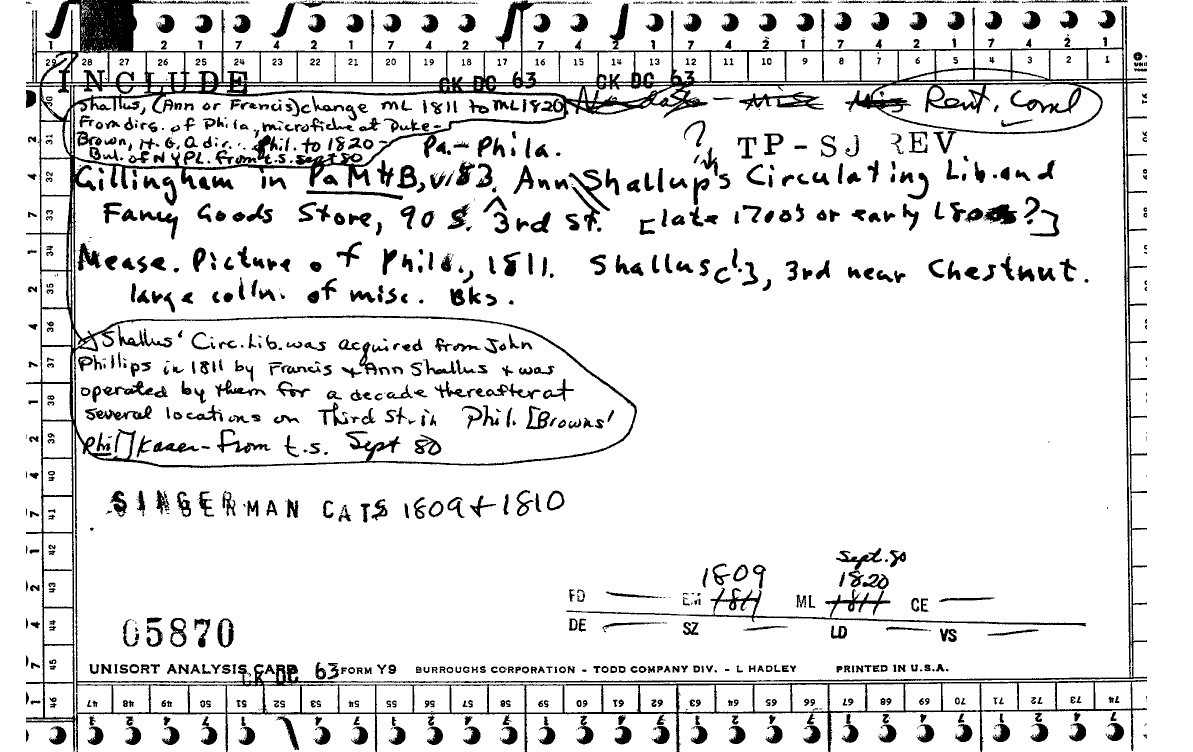 1 2 1 7 4 2 1 7 4 2 1 7 4 2 1 7 4 2 1 7 4 2 1 7 4 2 1
29 28 26 25 24 23 22 21 20 19 18 17 16 15 14 13 12 11 10 9 8 7 6 5 4 3 2 1
INCLUDE CK DC 63 CK DC 63
Shallus, (Ann or Francis) change ML 1811 to ML 1820 No data - Misc Misc Rent. Coml
From dirs. of Phila, microfiche at Duke-
Brown, H. G. A dir... Phil. to 1820- Pa.- Phila. ? TP-SJ REV
Bul. of NYPL. from t.s. Sept 80
Gillingham in PaMHB, v. 83. Ann Shallup's Circulating Lib. and
Fancy Goods Store, 90 S. 3rd St. [late 1700s or early 1800s?]
Mease. Picture of Phila., 1811. Shallus[!], 3rd near Chestnut.
large colln. of misc. Bks.
Shallus' Circ. Lib. was acquired from John
Phillips in 1811 by Francis + Ann Shallus + was
operated by them for a decade thereafter at
several locations on Third St. in Phil. [Browns'
Phil] Kaser- from t.s. Sept 80
SINGERMAN CATS 1809 + 1810
Sept. 80
1809 1820
FD EM 1811 ML 1811 CE
DE SZ LD VS
05870
UNISORT ANALYSIS CARD CK DC 63 FORM Y9 BURROUGHS CORPORATION - TODD COMPANY DIV. - L HADLEY PRINTED IN U.S.A.
47 48 49 50 51 52 53 54 55 56 57 58 59 60 61 62 63 64 65 66 67 68 69 70 71 72 73 74